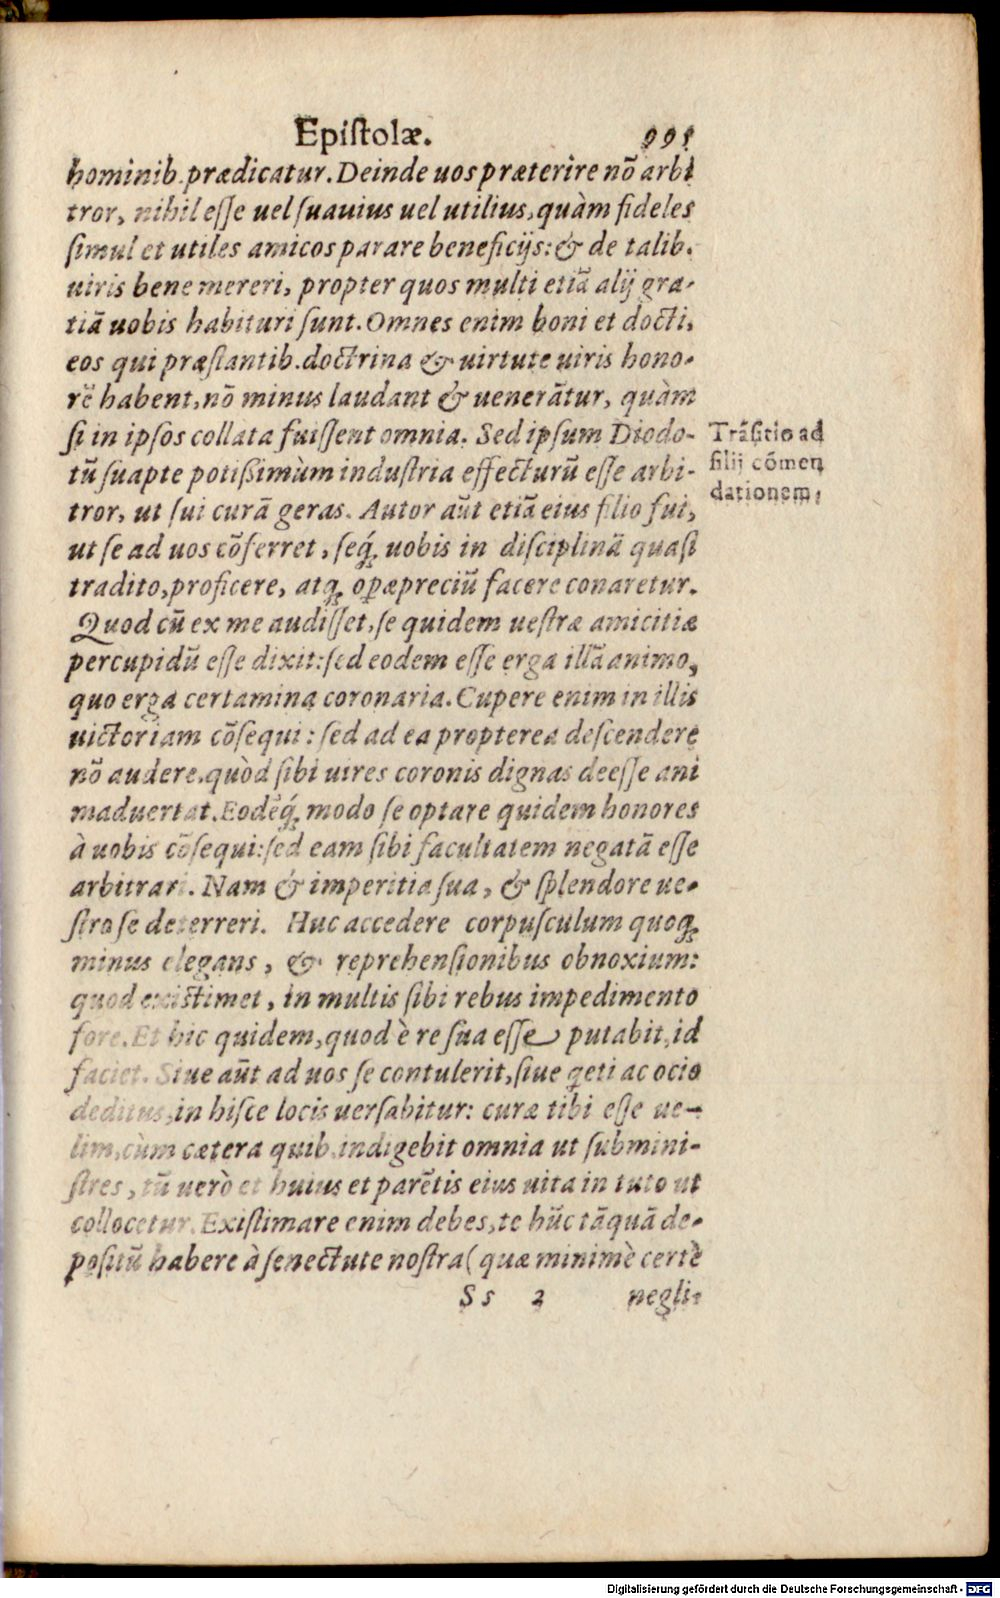 Epiſtolæ. 995
hominib. prædicatur. Deinde uos præterire nō arbi
tror, nihil eſſe uel ſuauius uel utilius, quàm fideles
ſimul et utiles amicos parare beneficijs: & de talib.
uiris bene mereri, propter quos multi etiā alij gra-
tiā uobis habituri ſunt. Omnes enim boni et docti,
eos qui præſtantib. doctrina & uirtute uiris hono-
rē habent, nō minus laudant & uenerātur, quàm
ſi in ipſos collata fuiſſent omnia. Sed ipſum Diodo-
tū ſuapte potißimùm induſtria effecturū eſſe arbi-
tror, ut ſui curā geras. Autor aūt etiā eius filio fui,
ut ſe ad uos cōferret, ſeq́; uobis in diſciplinā quaſi
tradito, proficere, atq; operæpreciū facere conaretur.
Quod cū ex me audiſſet, ſe quidem ueſtræ amicitiæ
percupidū eſſe dixit: ſed eodem eſſe erga illā animo,
quo erga certamina coronaria. Cupere enim in illis
uictoriam cōſequi: ſed ad ea propterea deſcendere
nō audere, quòd ſibi uires coronis dignas deeſſe ani
maduertat. Eodēq́; modo ſe optare quidem honores
à uobis cōſequi: ſed eam ſibi facultatem negatā eſſe
arbitrari. Nam & imperitia ſua, & ſplendore ue-
ſtro ſe deterreri. Huc accedere corpuſculum quoq;
minus elegans, & reprehenſionibus obnoxium:
quod exiſtimet, in multis ſibi rebus impedimento
fore. Et hic quidem, quod è re ſua eſſe putabit, id
faciet. Siue aūt ad uos ſe contulerit, ſiue q̄eti ac ocio
deditus, in hiſce locis uerſabitur: curæ tibi eſſe ue-
lim, cùm cætera quib. indigebit omnia ut ſubmini-
ſtres, tū uerò et huius et parētis eius uita in tuto ut
collocetur. Exiſtimare enim debes, te hūc tāquā de-
poſitū habere à ſenectute noſtra (quæ minimè certè
Ss 2 negli-
Trāſitio ad
filij cōmen
dationem,
Digitalisierung gefördert durch die Deutsche Forschungsgemeinschaft - DFG